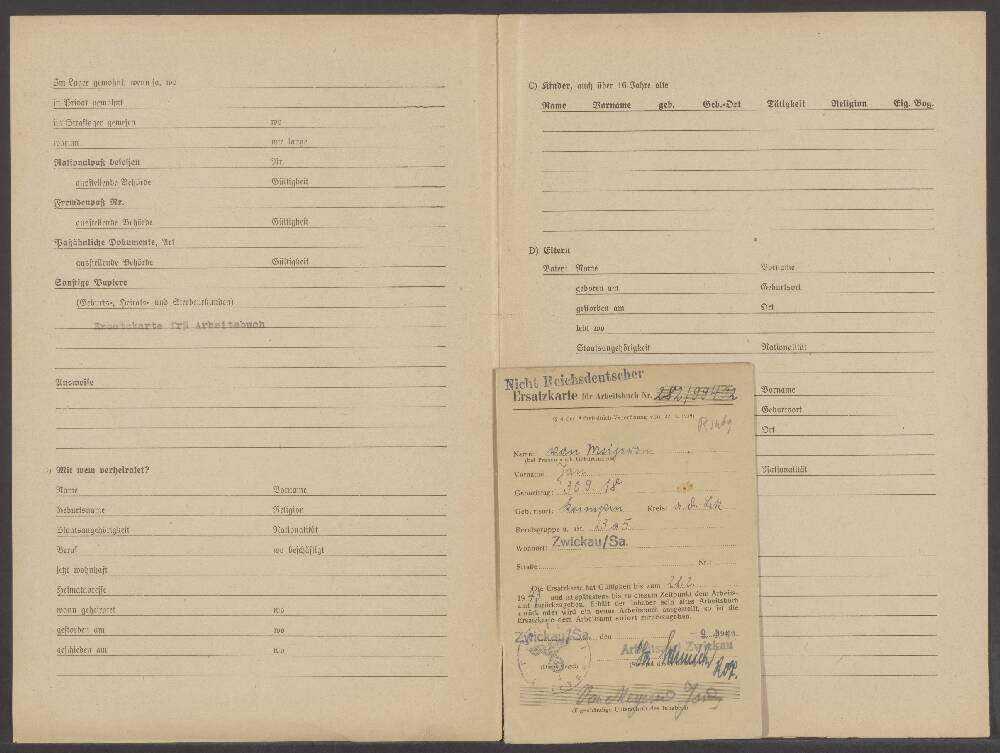 Im Lager gewohnt, wenn ja, wo
in Privat gewohnt
im Straflager gewesen wo
warum wie lange
Nationalpaß besessen Nr.
ausstellende Behörde Gültigkeit
Fremdenpaß Nr.
ausstellende Behörde Gültigkeit
Paßähnliche Dokumente, Art
ausstellende Behörde Gültigkeit
Sonstige Papiere
(Geburts-, Heirats- und Sterbeurkunden)
Ersatzkarte für Arbeitsbuch
Ausweise
Mit wem verheiratet?
Name Vorname
Geburtsname Geburtsort
Geburtsname Religion
Staatsangehörigkeit Nationalität
Beruf wo beschäftigt
jetzt wohnhaft
Heimatadresse
wann geheiratet wo
gestorben am wo
geschieden am wo
C) Kinder, auch über 16 Jahre alte
Name Vorname geb. Geb.-Ort Tätigkeit Religion Eig. Bog.
D) Eltern
Vater: Name Vorname
geboren am Geburtsort
gestorben am Ort
lebt wo
Staatsangehörigkeit Nationalität
Vorname
Geburtsort
Ort
Nationalität
Nicht Reichsdeutscher
Ersatzkarte für Arbeitsbuch Nr. 282/
Name: van
(bei Frauen auch Geburtsname)
Vorname Jan
Geburtstag: 30.9. 18
Geburtsort: Kreis: a. d. Lek
Berufsgruppe u. -art
Wohnort: Zwickau/Sa.
Straße: Nr.:
Die Ersatzkarte hat Gültigkeit bis zum 28.2.
und ist spätestens bis zu diesem Zeitpunkt dem Arbeits-
amt zurückzugeben. Erhält der Inhaber sein altes Arbeitsbuch
zurück oder wird ein neues Arbeitsbuch ausgestellt, so ist die
Ersatzkarte dem Arbeitsamt sofort zurückzugeben.
Zwickau/Sa. den
Zwickau
(Eigenhändige Unterschrift des Inhabers)